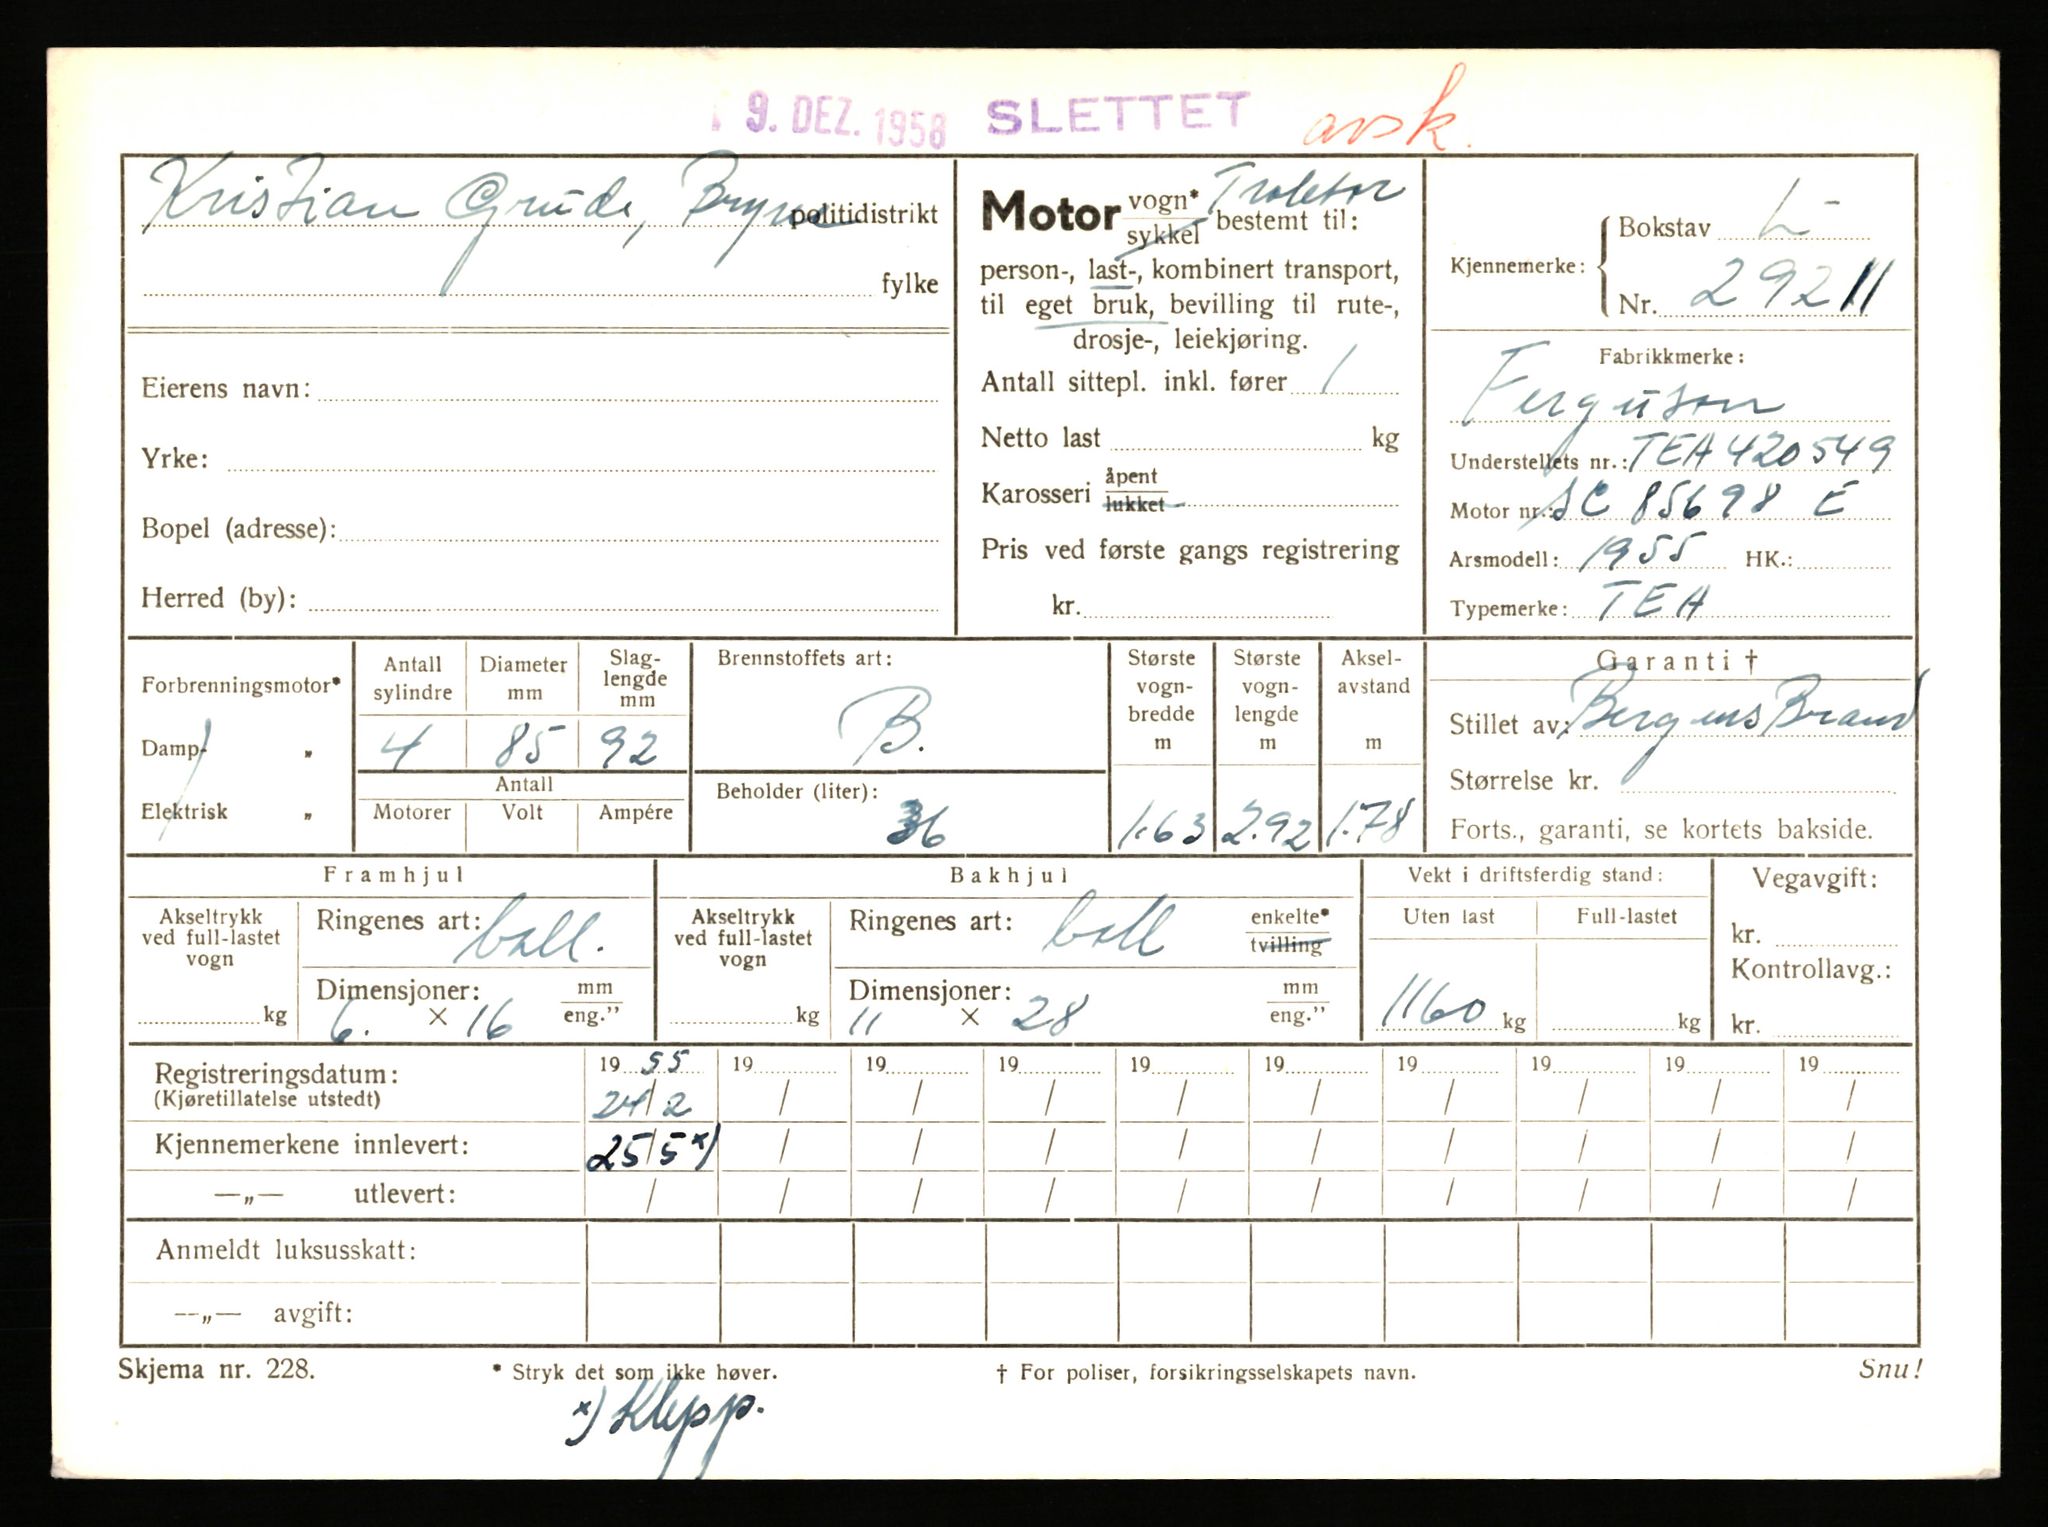 9. DEZ. 1958 SLETTET avsk.
Kristian Grude, Bryne politidistrikt
fylke
Eierens navn:
Yrke:
Bopel (adresse):
Herred (by):
Motor vogn* Traktor
sykkel bestemt til:
person-, last-, kombinert transport,
til eget bruk, bevilling til rute-,
drosje-, leiekjøring.
Antall sittepl. inkl. fører 1
Netto last kg
Karosseri åpent
lukket
Pris ved første gangs registrering
kr.
Kjennemerke: Bokstav L
Nr. 29211
Fabrikkmerke:
Ferguson
Understellets nr.: TEA 420549
Motor nr.: SC 85698 E
Arsmodell: 1955 HK.:
Typemerke: TEA
Forbrenningsmotor*
Damp- "
Elektrisk "
Antall sylindre Diameter mm Slag-lengde mm
4 85 92
Antall
Motorer Volt Ampére
Brennstoffets art:
B.
Beholder (liter):
36
Største vogn-bredde m
1.63
Største vogn-lengde m
2.92
Aksel-avstand m
1.78
Garanti †
Stillet av: Bergens Brand
Størrelse kr.
Forts., garanti, se kortets bakside.
Framhjul
Akseltrykk ved full-lastet vogn
kg
Ringenes art: ball.
Dimensjoner: mm
6. × 16 eng."
Bakhjul
Akseltrykk ved full-lastet vogn
kg
Ringenes art: ball enkelte*
tvilling
Dimensjoner: mm
11 × 28 eng."
Vekt i driftsferdig stand:
Uten last Full-lastet
1160 kg kg
Vegavgift:
kr.
Kontrollavg.:
kr.
Registreringsdatum: 19 55 19 19 19 19 19 19 19 19 19
(Kjøretillatelse utstedt) 24/2 / / / / / / / / /
Kjennemerkene innlevert: 25/5 x) / / / / / / / / /
—„— utlevert: / / / / / / / / / /
Anmeldt luksusskatt:
—„— avgift:
Skjema nr. 228. * Stryk det som ikke høver. † For poliser, forsikringsselskapets navn. Snu!
x) Klepp.